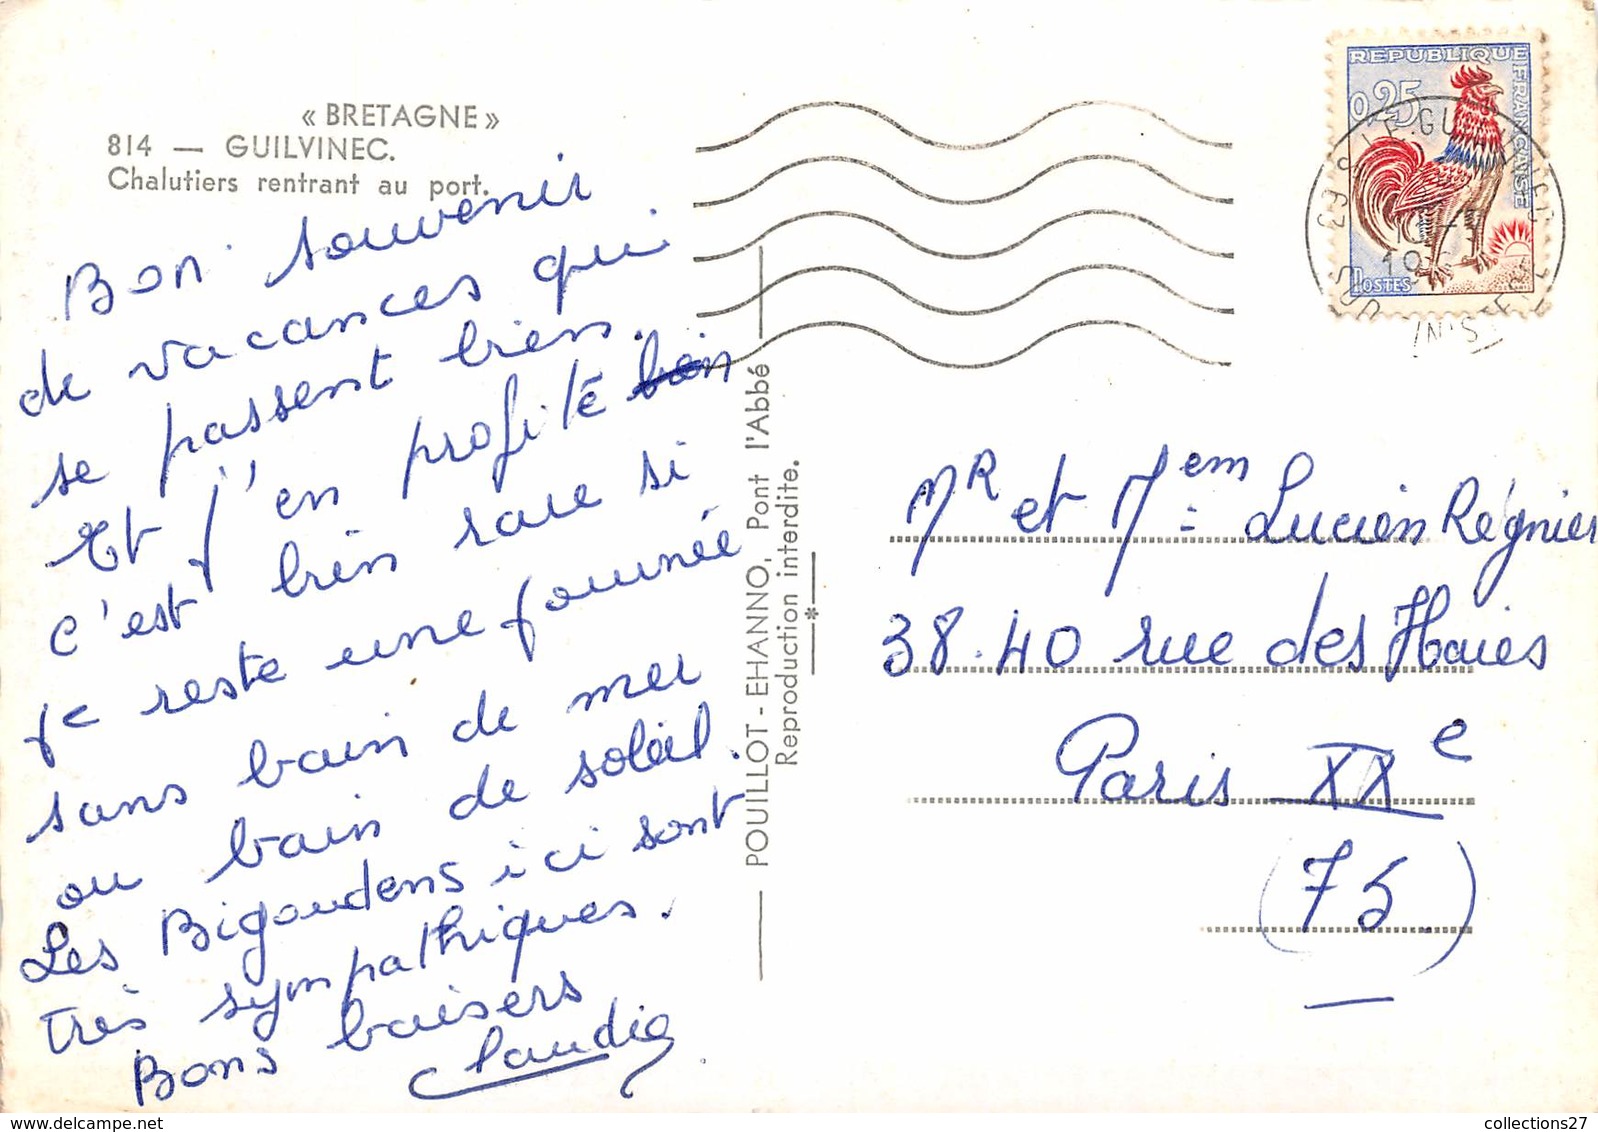 « BRETAGNE »
814 — GUILVINEC.
Chalutiers rentrant au port.
Bon souvenir
de vacances qui
se passent bien.
Et j'en profite
c'est bien rare si
je reste une journée
sans bain de mer
ou bain de soleil.
Les Bigoudens ici sont
très sympathiques.
Bons baisers
Claudie
POUILLOT - EHANNO, Pont l'Abbé
Reproduction interdite.
REPUBLIQUE
FRANÇAISE
0,25
POSTES
Mr et Mem Lucien Régnier
38.40 rue des Haies
Paris XXe
(75)
collections27